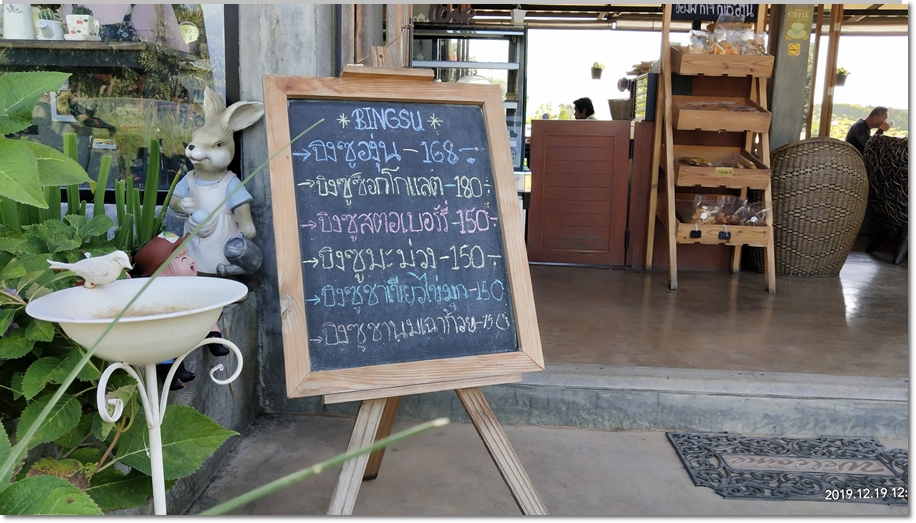 * BINGSU *
→บิงซูองุ่น-168.-
→บิงซูช็อกโกแลต-180.-
→บิงซูสตอเบอร์รี่-150.-
→บิงซูมะม่วง-150.-
→บิงซูชาเขียวไข่มุก-150
→บิงซูชานมเฉาก๊วย-150
COFFEE
Welcome
2019.12.19 12: